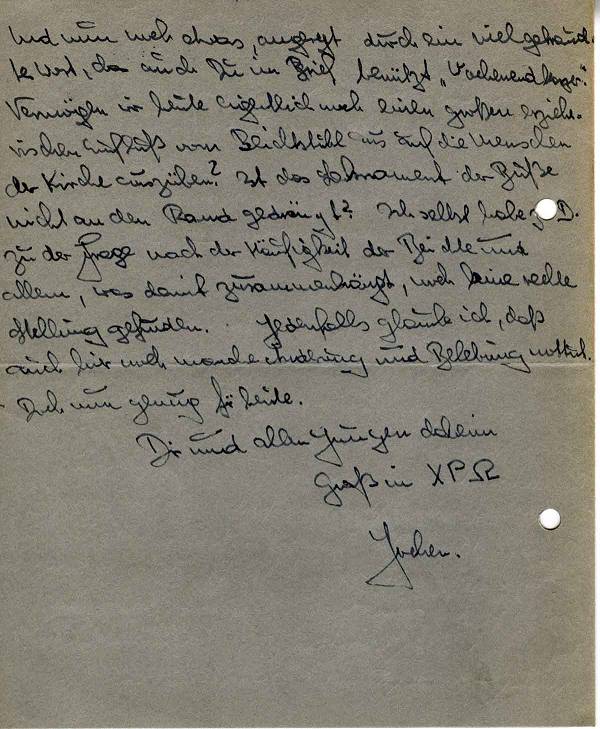 Und nun noch etwas, angeregt durch ein viel gebrauch-
tes Wort, das auch Du im Brief benützt
Vermögen wir heute eigentlich noch einen großen erziehe-
rischen Einfluß vom Beichtstuhl aus auf die Menschen
der Kirche auszuüben? Ist das Sakrament der Buße
nicht an den Rand gedrängt? Ich selbst habe z. B.
zu der Frage nach der Häufigkeit der Beichte und
allem, was damit zusammenhängt, noch keine rechte
Stellung gefunden. Jedenfalls glaube ich, daß
auch hier noch manche Änderung und Belebung nottut.
Doch nun genug für heute.
Dir und allen Jungen daheim
Gruß in XPΩ
Jochen.